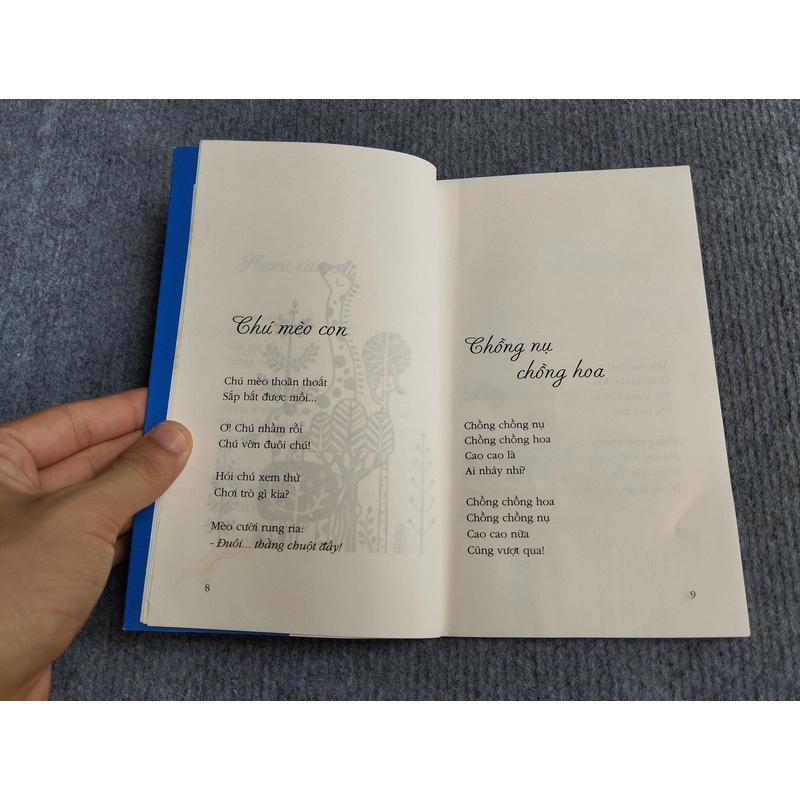 Chú mèo con
Chú mèo thoăn thoắt
Sắp bắt được mồi...
Ơ! Chú nhầm rồi
Chú vờn đuôi chú!
Hỏi chú xem thử
Chơi trò gì kia?
Mèo cười rung ria:
- Đuôi... thằng chuột đấy!
8
Chồng nụ
chồng hoa
Chồng chồng nụ
Chồng chồng hoa
Cao cao là
Ai nhảy nhỉ?
Chồng chồng hoa
Chồng chồng nụ
Cao cao nữa
Cũng vượt qua!
9